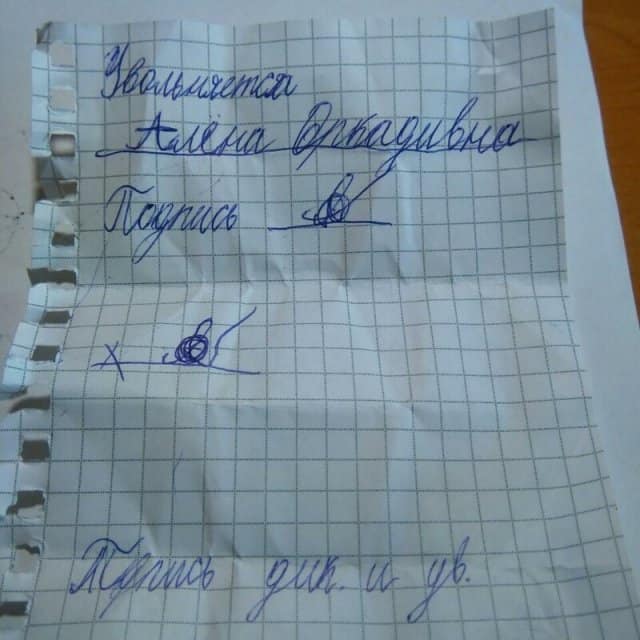 Увольняется
Алёна Аркадивна
Подпись
х
Пдпись дик. и ув.